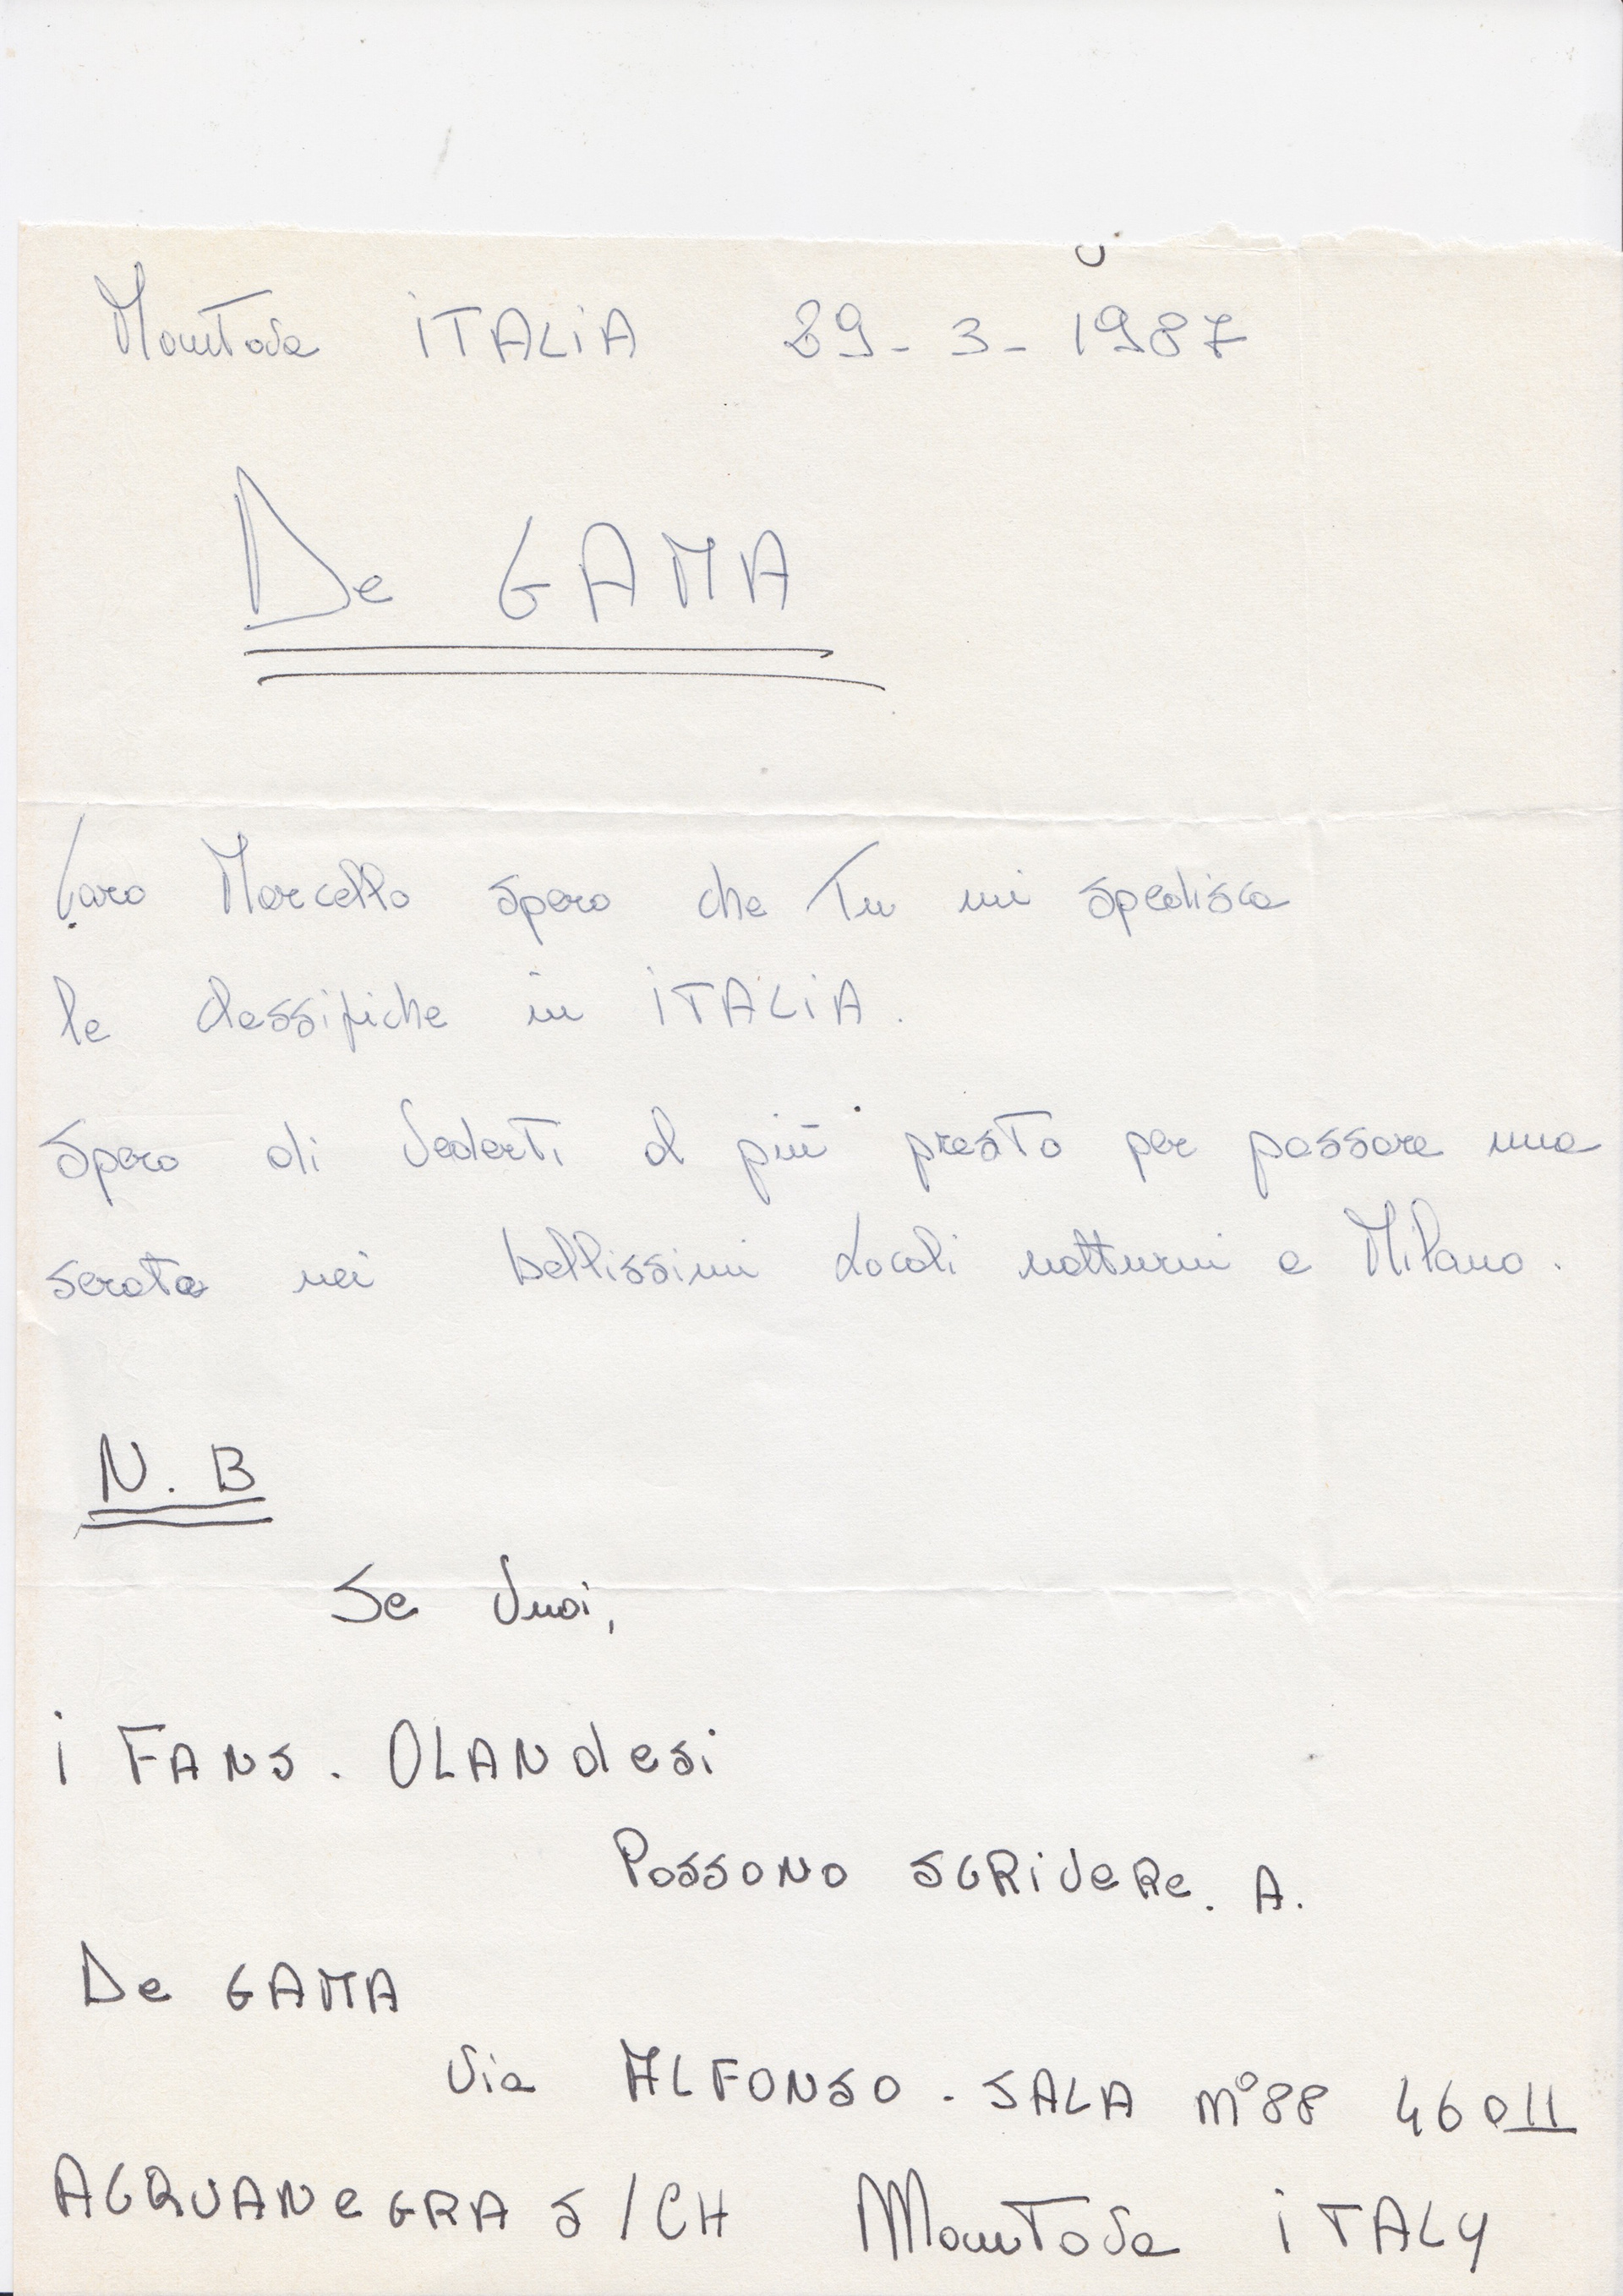 Mantova ITALIA 29-3-1987
De GAMA
Caro Marcello spero che Tu mi spedisca
le classifiche in ITALIA.
Spero di vederti al più presto per passare una
serata nei bellissimi locali notturni a Milano.
N.B
Se vuoi,
i FANS. OLANdesi
POSSONO SCRiveRe. A.
De GAMA
Via ALFONSO. SALA n°88 46011
ACQUANeGRA S/CH Mantova iTALY